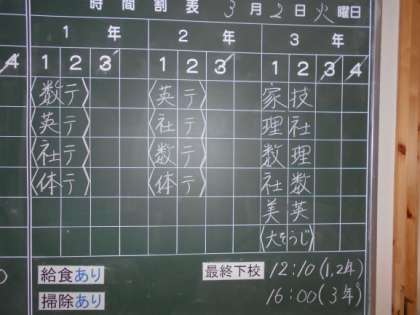 時間割表 3月2日火曜日
1年 2年 3年
4 1 2 3 1 2 3 1 2 3 4
〈数テ〉 〈英テ〉 家 技
〈英テ〉 〈社テ〉 理 社
〈社テ〉 〈数テ〉 数 理
〈体テ〉 〈体テ〉 社 数
美 英
〈大そうじ〉
給食あり 最終下校 12:10(1,2年)
掃除あり 16:00(3年)